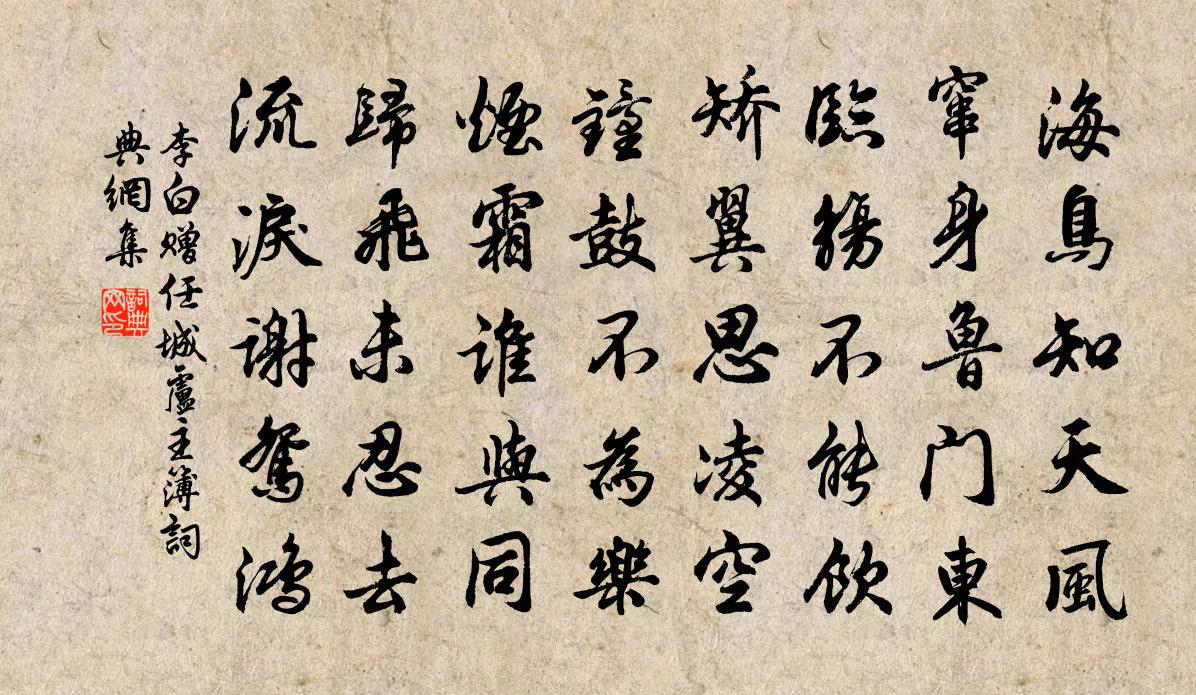 海鳥知天風
竄身魯门東
臨觴不能飲
矯翼思凌空
鐘鼓不為樂
煙霜誰與同
歸飛未忍去
流淚謝鴛鴻
李白赠任城盧主簿詞
典網集
詞典
网印